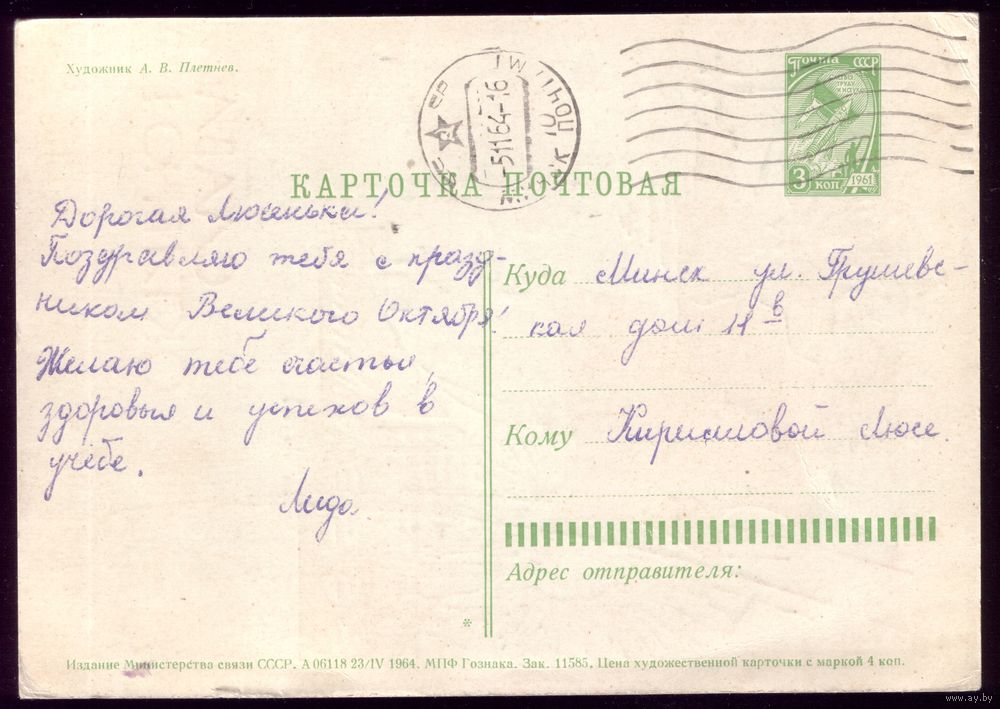 Художник А. В. Плетнев.
5 11 64-16
Почта СССР
3 коп
1961
КАРТОЧКА ПОЧТОВАЯ
Дорогая Люсенька!
Поздравляю тебя с празд-
ником Великого Октября!
Желаю тебе счастья,
здоровья и успехов в
учебе.
Лида.
Куда Минск ул. Грушевс-
кая дом 11 в
Кому Кирилловой Люсе.
Адрес отправителя:
*
Издание Министерства связи СССР. А 06118 23/IV 1964. МПФ Гознака. Зак. 11585. Цена художественной карточки с маркой 4 коп.
www.ay.by